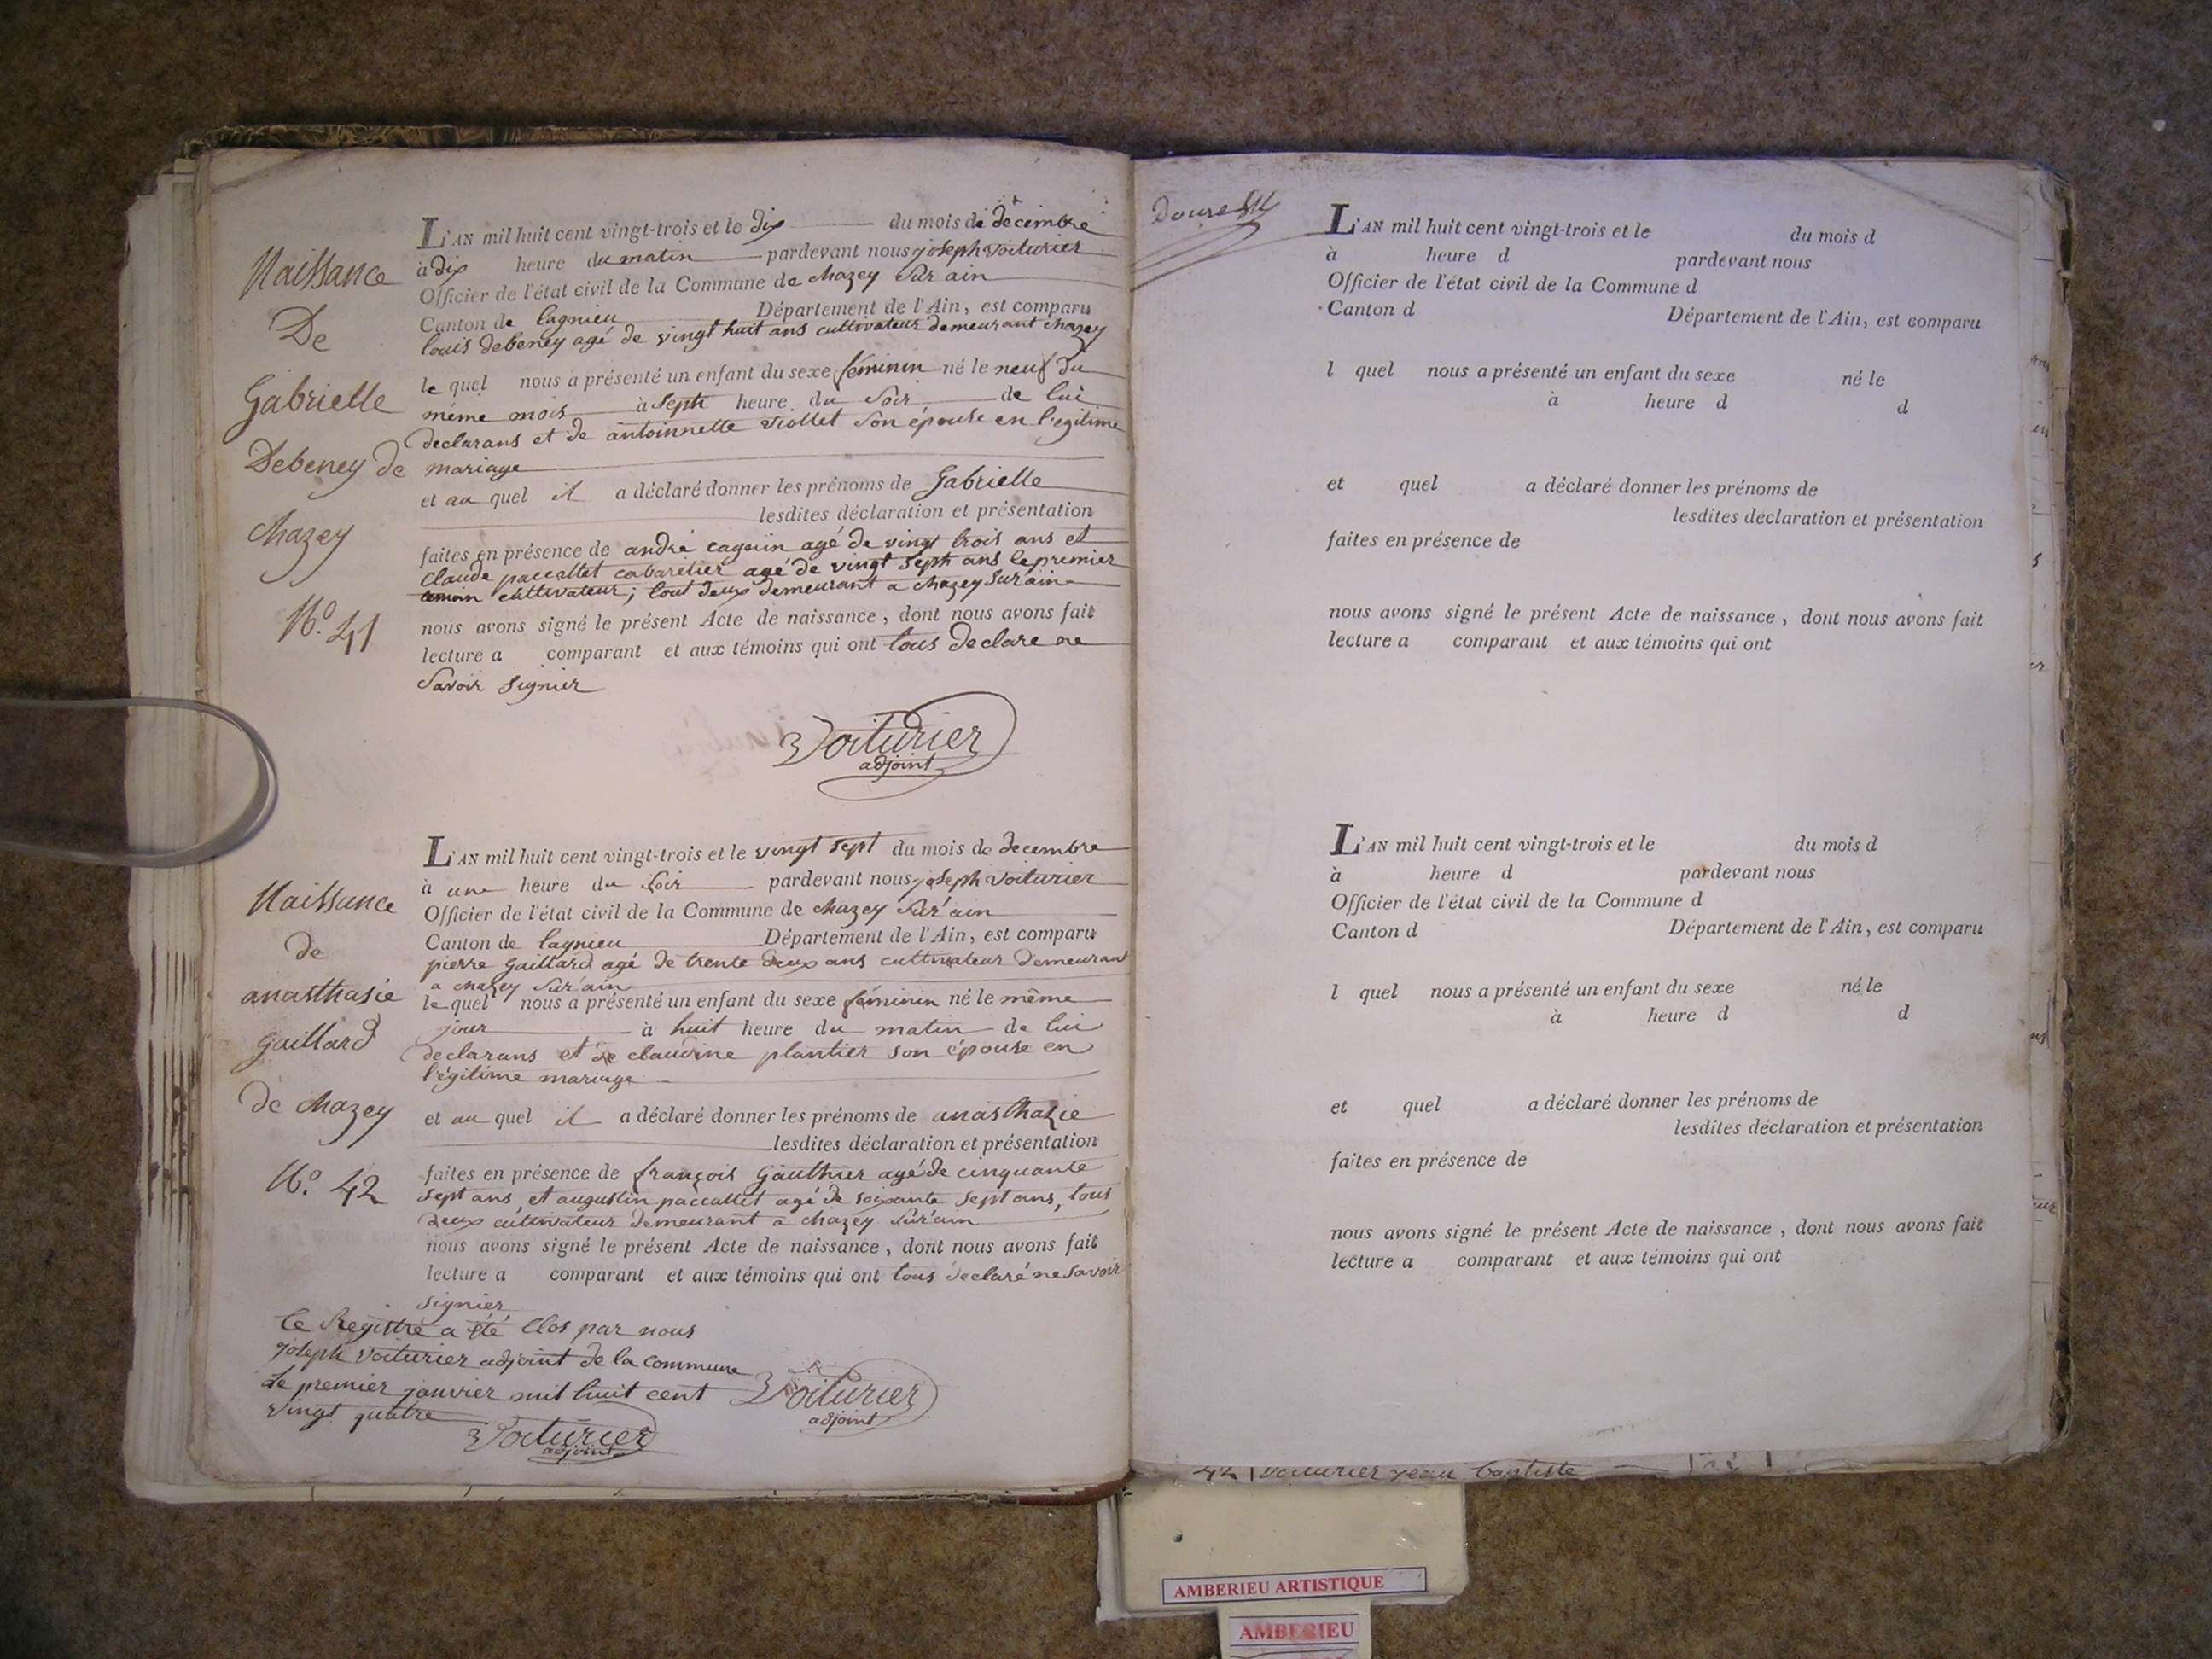 Naissance
De
Gabrielle
Debeney de
chazey
N.o 41
L'AN mil huit cent vingt-trois et le dix du mois de decembre
à dix heure du matin pardevant nous joseph voiturier
Officier de l'état civil de la Commune de chazey sur ain
Canton de lagnieu Département de l'Ain, est comparu
louis debeney agé de vingt huit ans cultivateur demeurant chazey
le quel nous a présenté un enfant du sexe féminin né le neuf du
même mois à seph heure du soir de lui
declarans et de antoinnette viollet son épouse en l'egitime
mariage
et au quel il a déclaré donner les prénoms de Gabrielle
lesdites déclaration et présentation
faites en présence de andré cagnin agé de vingt trois ans et
claude paccallet cabaretier agé de vingt seph ans le premier
temoin cultivateur; tout deux demeurant a chazey sur ain
nous avons signé le présent Acte de naissance, dont nous avons fait
lecture a comparant et aux témoins qui ont tous declare ne
savoir signier
Voiturier
adjoint
Naissance
de
anasthasie
gaillard
de chazey
N.o 42
L'AN mil huit cent vingt-trois et le vingt sept du mois de decembre
à une heure du soir pardevant nous joseph voiturier
Officier de l'état civil de la Commune de chazey sur ain
Canton de lagnieu Département de l'Ain, est comparu
pierre gaillard agé de trente deux ans cultivateur demeurant
a chazey sur ain
le quel nous a présenté un enfant du sexe féminin né le même
jour à huit heure du matin de lui
declarans et de claudine plantier son épouse en
l'égitime mariage
et au quel il a déclaré donner les prénoms de anasthazie
lesdites déclaration et présentation
faites en présence de françois Gauthier agé de cinquante
sept ans, et augustin paccallet agé de soixante sept ans, tous
deux cultivateur demeurant a chazey sur ain
nous avons signé le présent Acte de naissance, dont nous avons fait
lecture a comparant et aux témoins qui ont tous declaré ne savoir
signier
Ce Registre a été Clos par nous
joseph voiturier adjoint de la commune
Le premier janvier mil huit cent
vingt quatre
Voiturier
adjoint
Voiturier
adjoint
L'AN mil huit cent vingt-trois et le du mois d
à heure d pardevant nous
Officier de l'état civil de la Commune d
Canton d Département de l'Ain, est comparu
l quel nous a présenté un enfant du sexe né le
à heure d d
et quel a déclaré donner les prénoms de
lesdites declaration et présentation
faites en présence de
nous avons signé le présent Acte de naissance, dont nous avons fait
lecture a comparant et aux témoins qui ont
L'AN mil huit cent vingt-trois et le du mois d
à heure d pardevant nous
Officier de l'état civil de la Commune d
Canton d Département de l'Ain, est comparu
l quel nous a présenté un enfant du sexe né le
à heure d d
et quel a déclaré donner les prénoms de
lesdites déclaration et présentation
faites en présence de
nous avons signé le présent Acte de naissance, dont nous avons fait
lecture a comparant et aux témoins qui ont
42 voiturier jean baptiste
AMBERIEU ARTISTIQUE
AMBERIEU